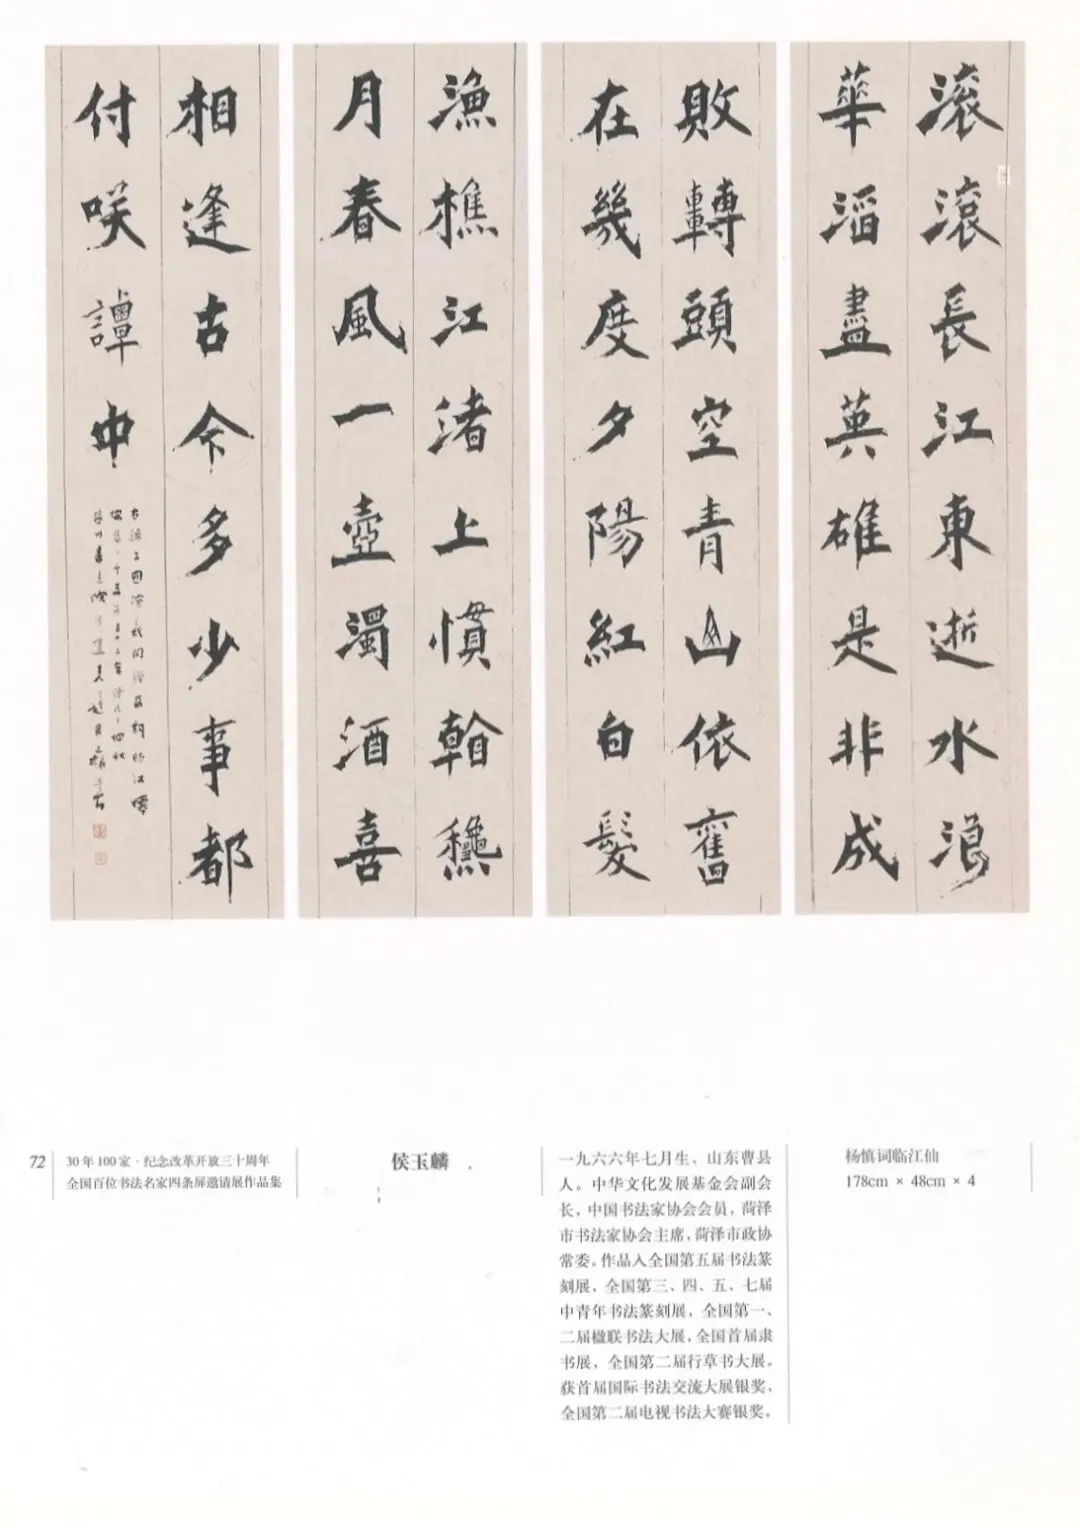 滚滾長江東逝水浪
華滔盡英雄是非成
敗轉頭空青山依舊
在幾度夕陽紅白髮
漁樵江渚上慣看龝
月春風一壺濁酒喜
相逢古今多少事都
付咲譚中
72
30年100家·纪念改革开放三十周年
全国百位书法名家四条屏邀请展作品集
侯玉麟
一九六六年七月生，山东曹县
人。中华文化发展基金会副会
长，中国书法家协会会员，菏泽
市书法家协会主席，菏泽市政协
常委。作品入全国第五届书法篆
刻展，全国第三、四、五、七届
中青年书法篆刻展，全国第一、
二届楹联书法大展，全国首届隶
书展，全国第二届行草书大展。
获首届国际书法交流大展银奖，
全国第二届电视书法大赛银奖。
杨慎词临江仙
178cm × 48cm × 4